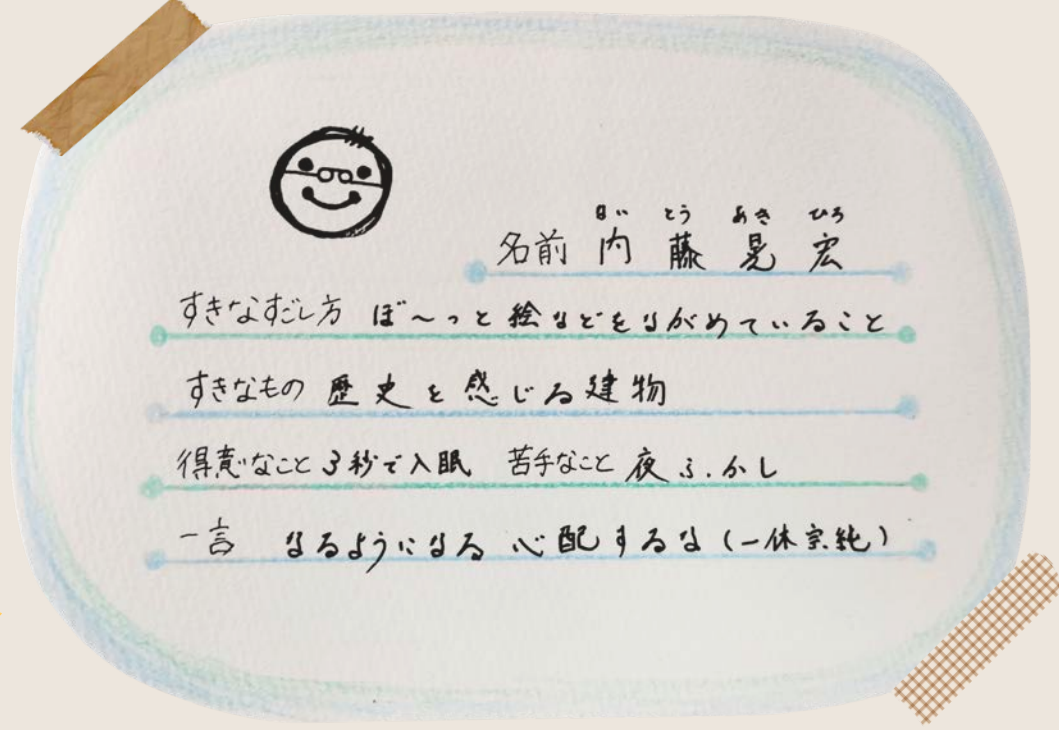 ない とう あき ひろ
名前 内藤 晃宏
すきなすごし方 ぼ〜っと絵などをながめていること
すきなもの 歴史を感じる建物
得意なこと 3秒で入眠 苦手なこと 夜ふかし
一言 なるようになる 心配するな(一休宗純)